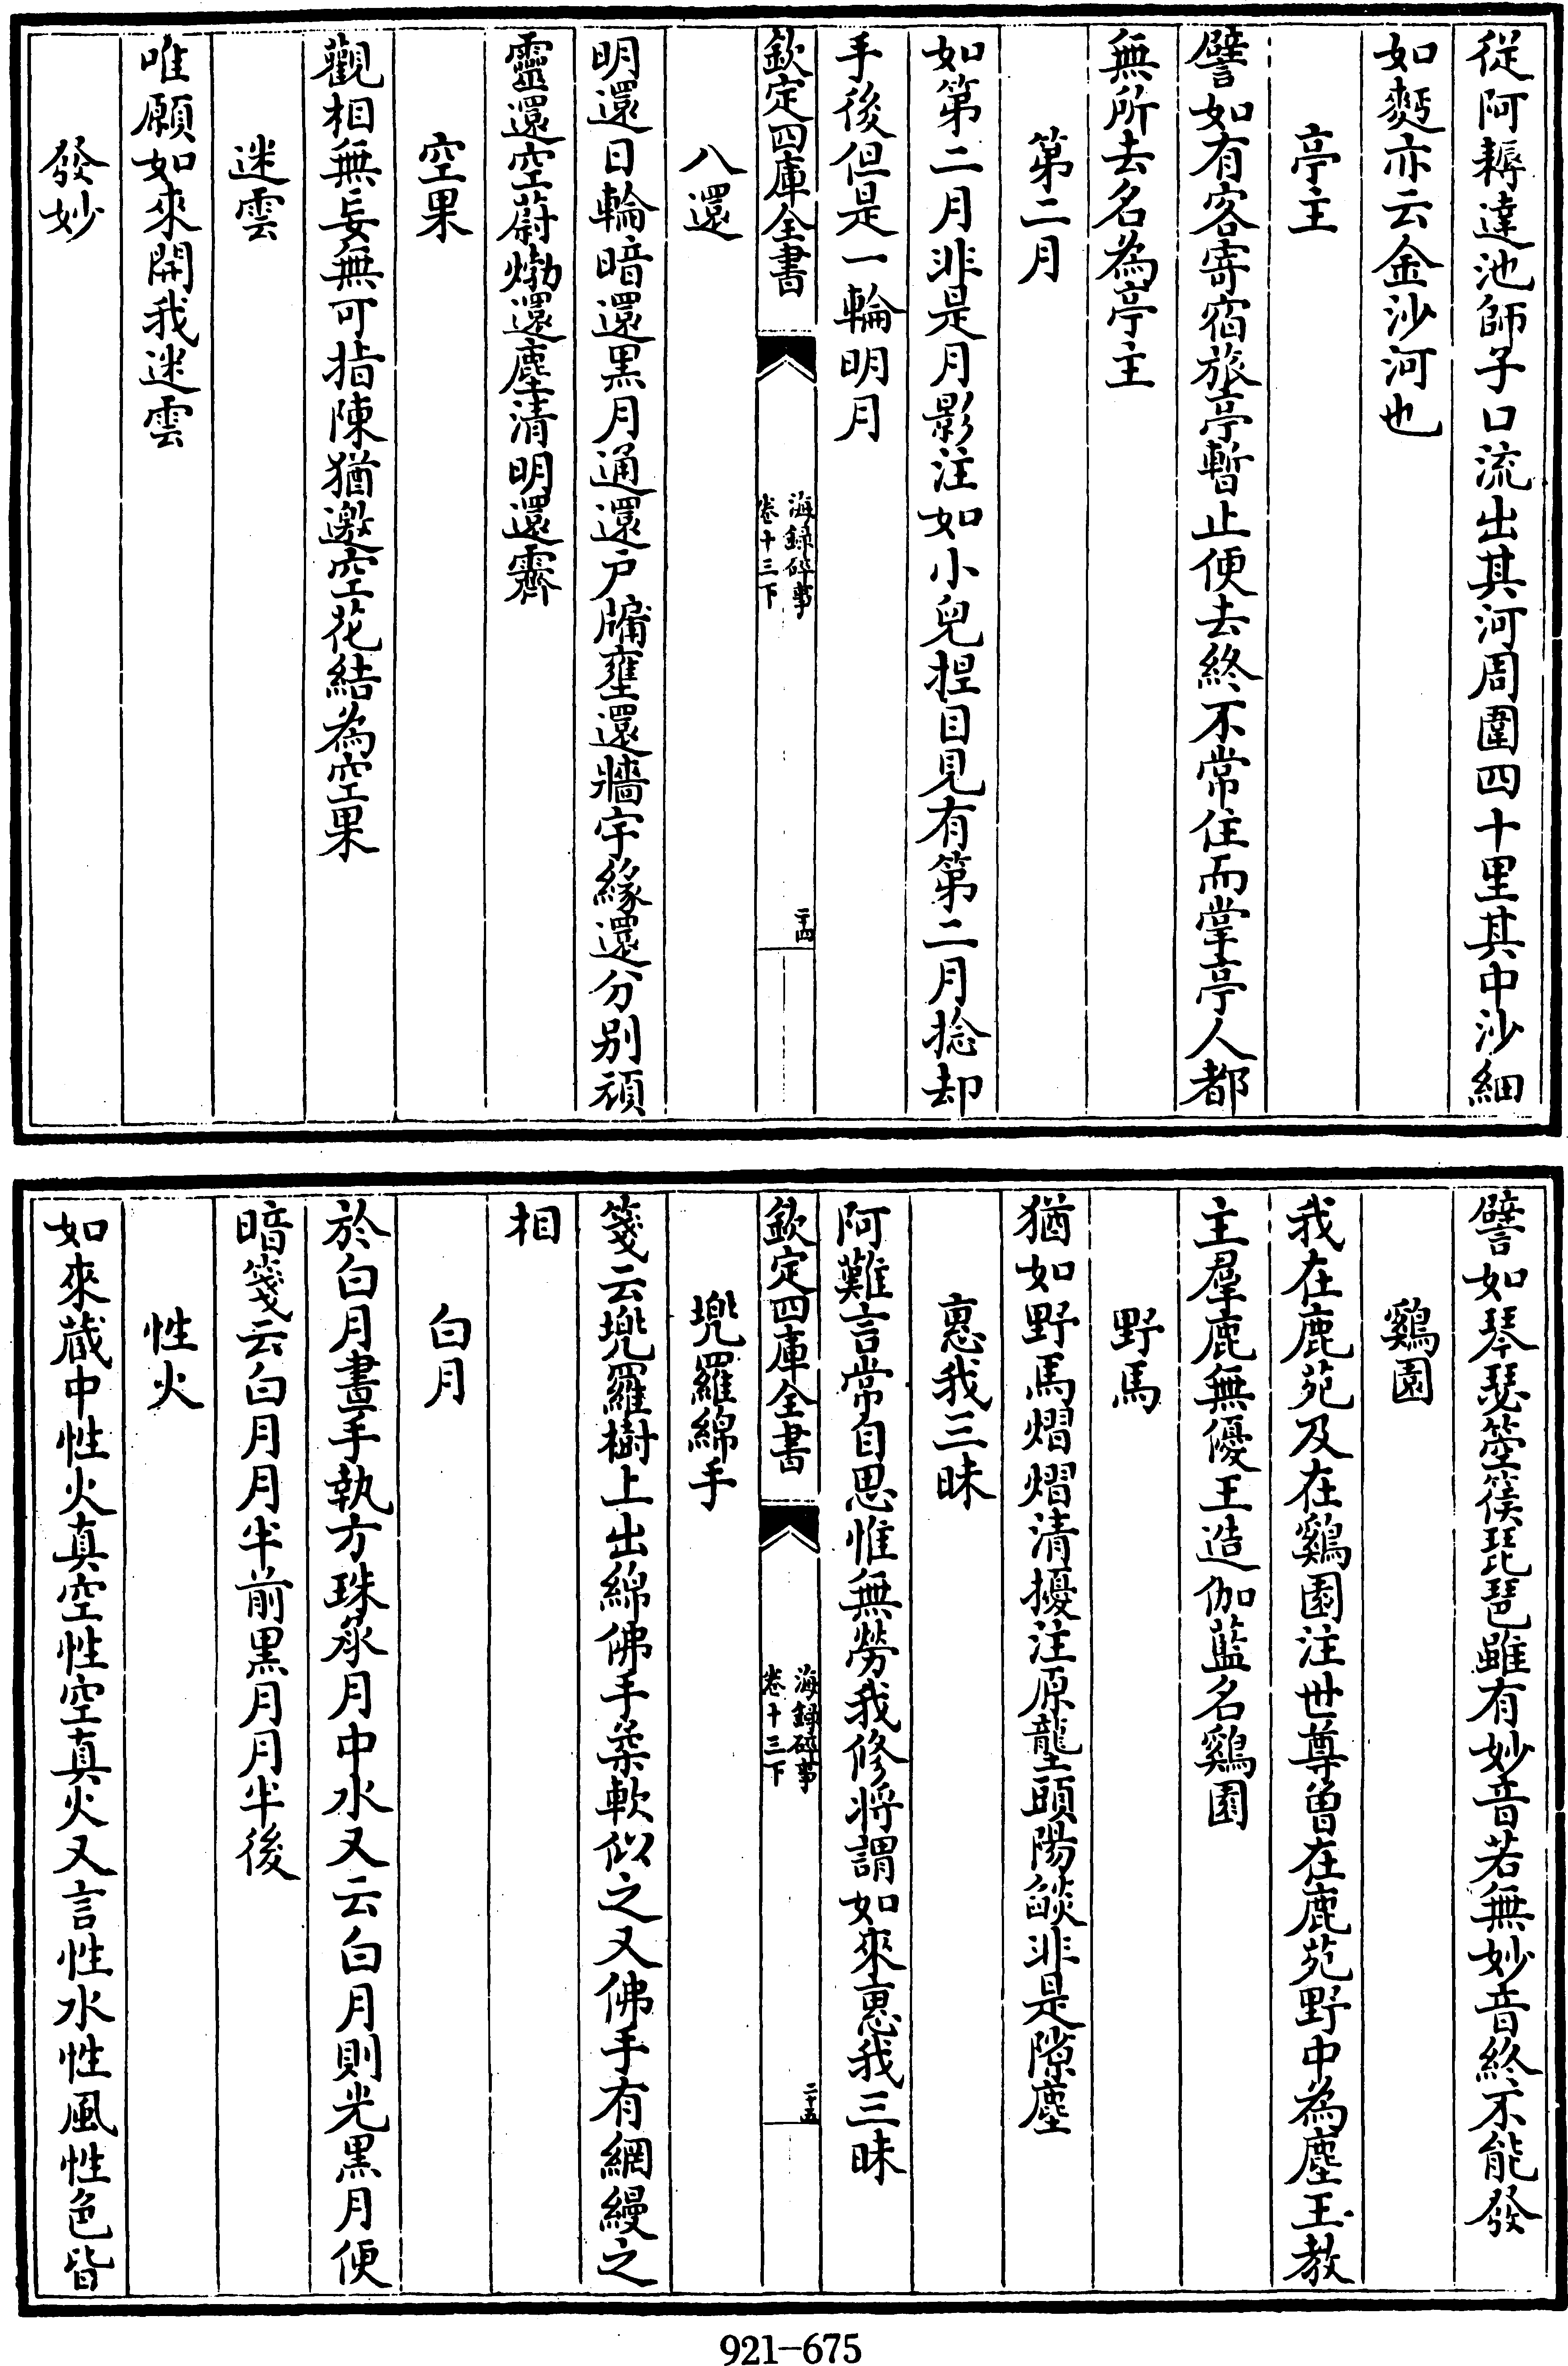 從阿耨達池師子口流出其河周圍四十里其中沙細
如麪亦云金沙河也
亭主
譬如有客寄宿旅亭暫止便去終不常住而掌亭人都
無所去名為亭主
第二月
如第二月非是月影注如小兒捏目見有第二月捻却
手後但是一輪明月
欽定四庫全書
海録碎事
卷十三下
二十四
八還
明還日輪暗還黑月通還戶牖壅還牆宇緣還分別頑
靈還空蔚㶿還塵清明還霽
空果
觀相無妄無可指陳猶邀空花結為空果
迷雲
唯願如來開我迷雲
發妙
譬如琴瑟箜篌琵琶雖有妙音若無妙音終不能發
鷄園
我在鹿苑及在鷄園注世尊曾在鹿苑野中為塵王教
主羣鹿無優王造伽藍名鷄園
野馬
猶如野馬熠熠清擾注原壟頭陽燄非是隙塵
惠我三昧
阿難言常自思惟無勞我修將謂如來惠我三昧
欽定四庫全書
海録碎事
卷十三下
二十五
兠羅綿手
箋云兠羅樹上出綿佛手柔軟似之又佛手有網縵之
相
白月
於白月晝手執方珠承月中水又云白月則光黑月便
暗箋云白月月半前黑月月半後
性火
如來蔵中性火真空性空真火又言性水性風性色皆
921-675